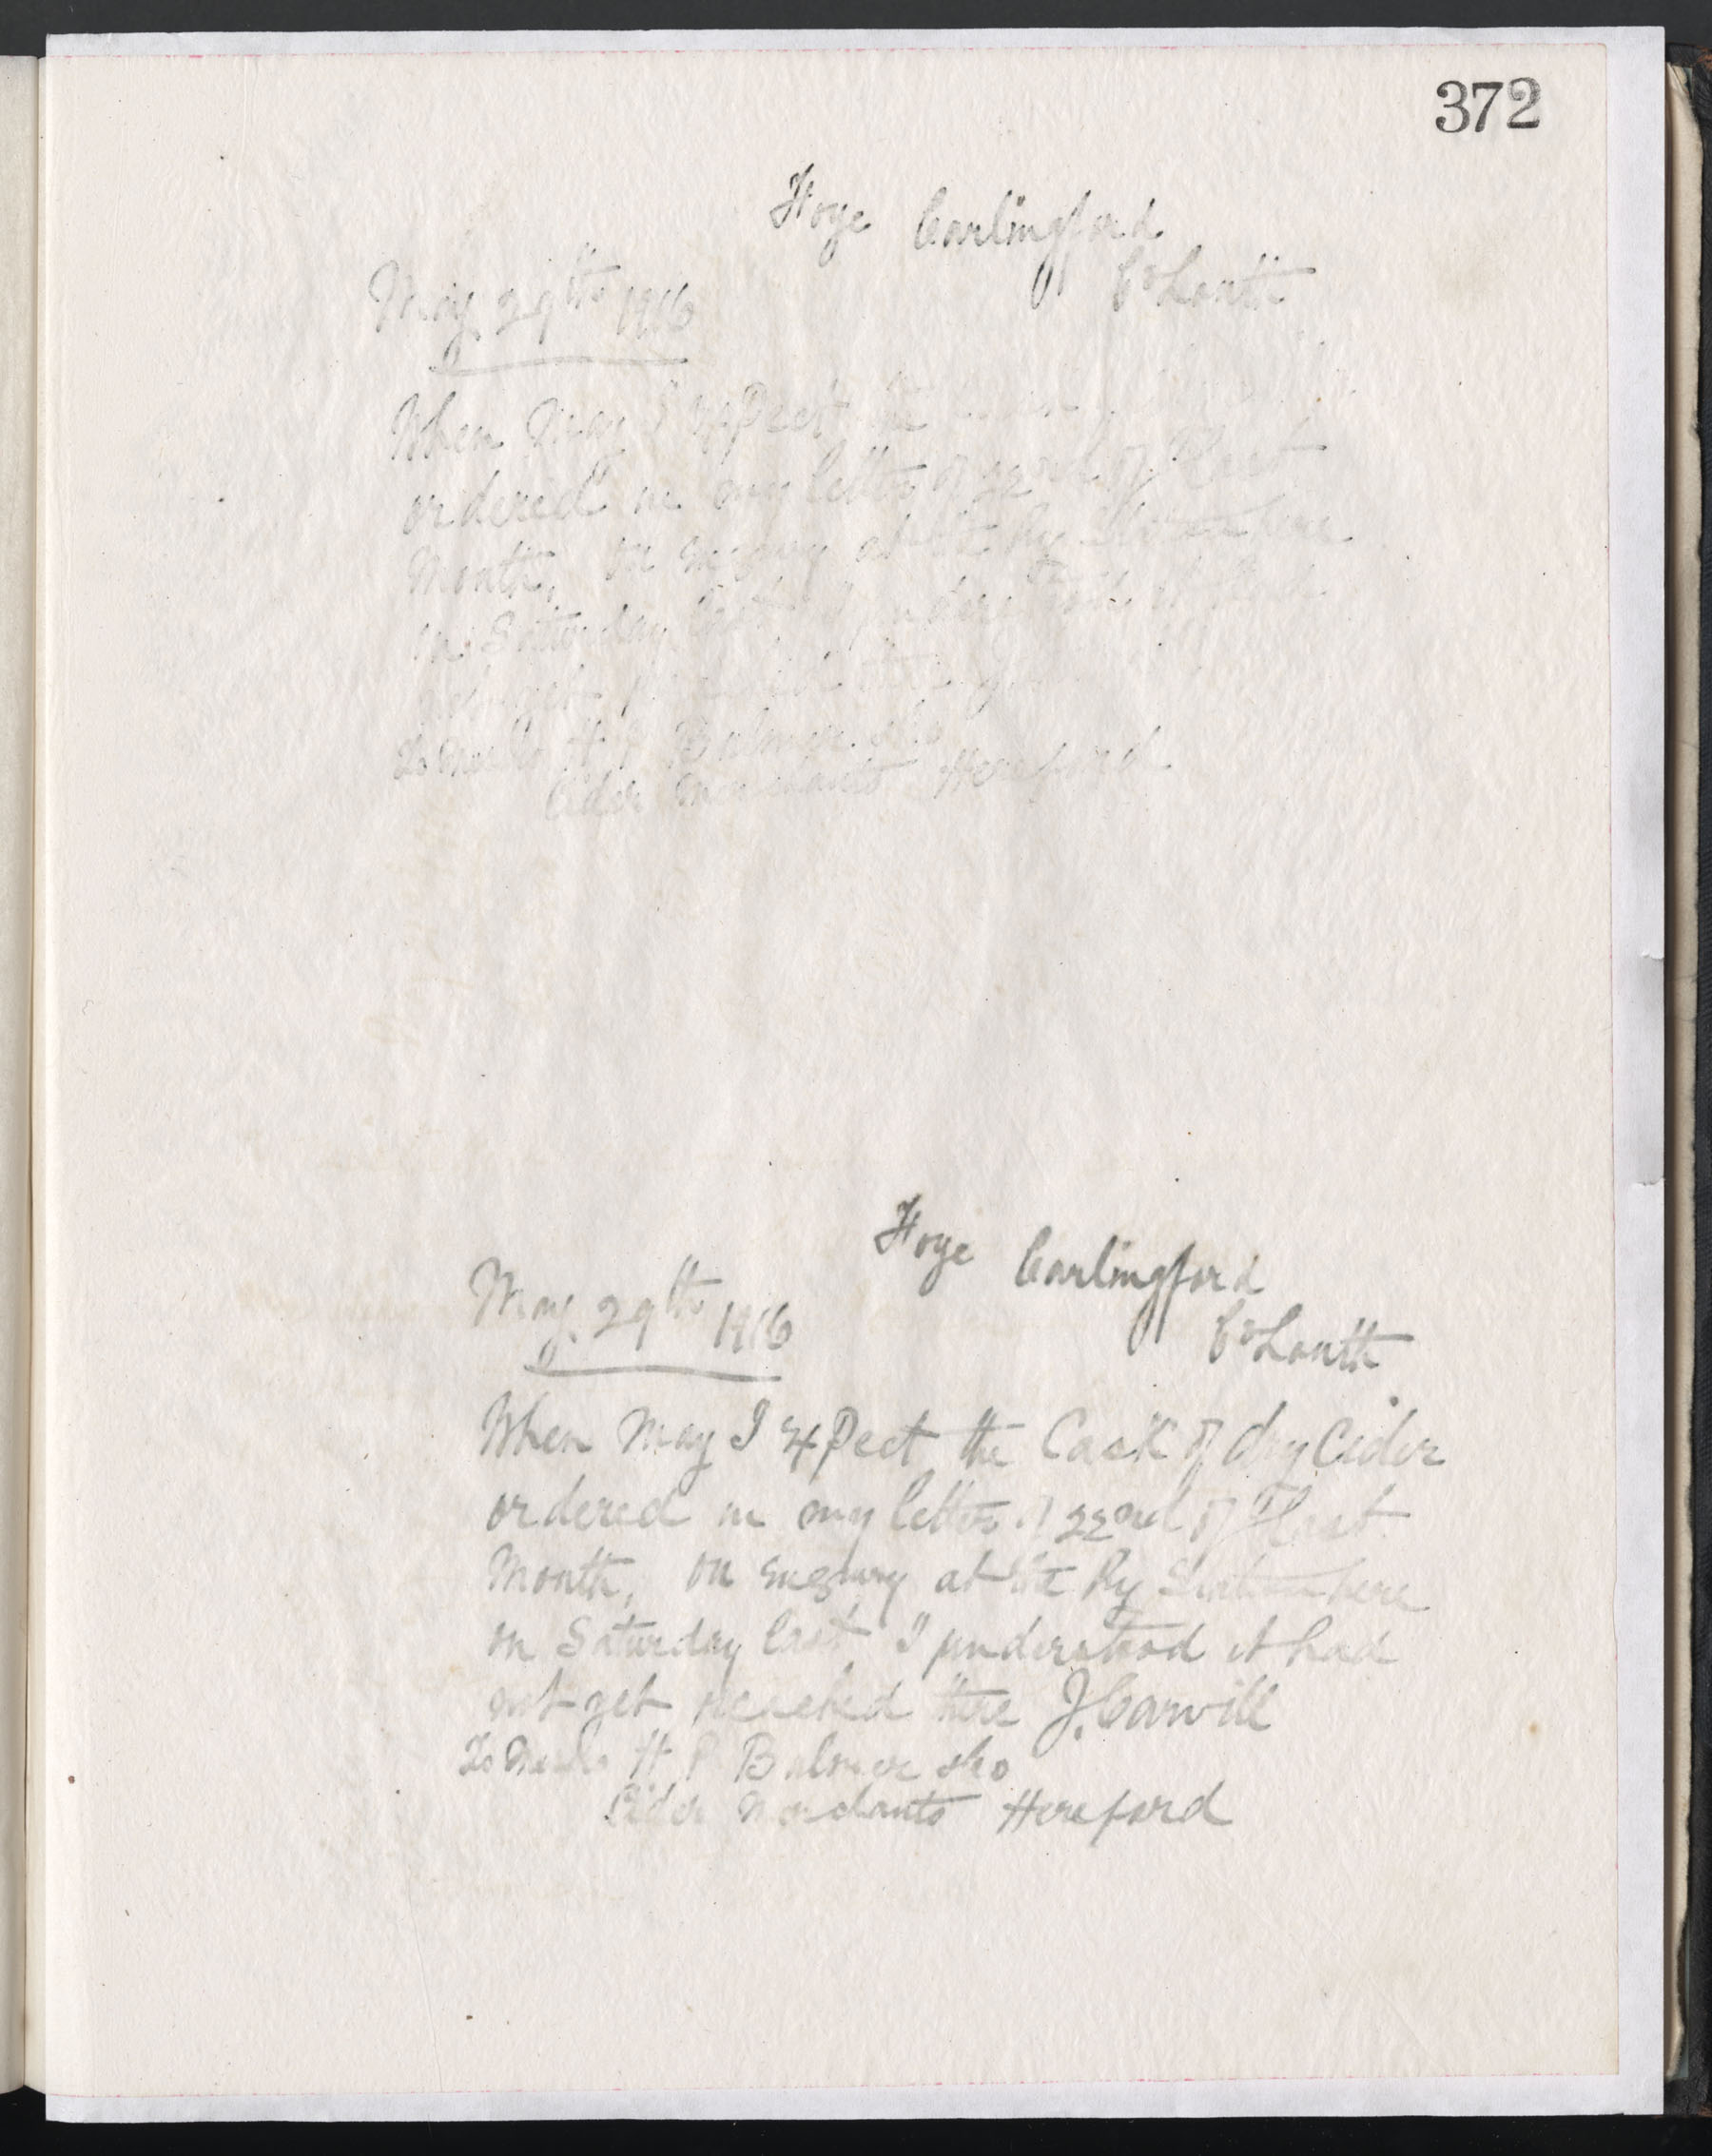 372
Hoye Carlingford
Co Louth
May 29th 1916
When May I expect the
ordered in my letter of 22nd of last
Month, on enquiry at the Ry Station here
on Saturday last I understood it had
not yet reached
To Messrs H P Bulmer & Co
Cider Merchants Hereford
Hoye Carlingford
Co Louth
May 29th 1916
When May I expect the Cask of dry Cider
ordered in my letter of 22nd of last
Month, on enquiry at the Ry Station here
on Saturday last I understood it had
not yet reached here J. Carvill
To Messrs H P Bulmer & Co
Cider Merchants Hereford